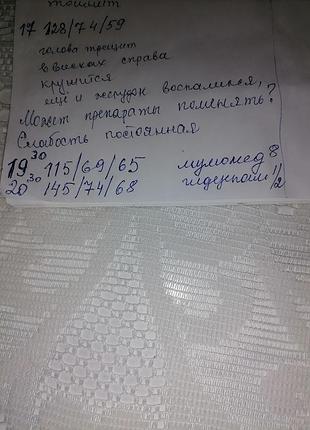 тошнит
17 128/74/59
голова трещит
в висках справа
крутится
еще и желудок воспалился,
Может препараты поменять?
Слабость постоянная
19 30 115/69/65 8
20 30 145/74/68 1/2